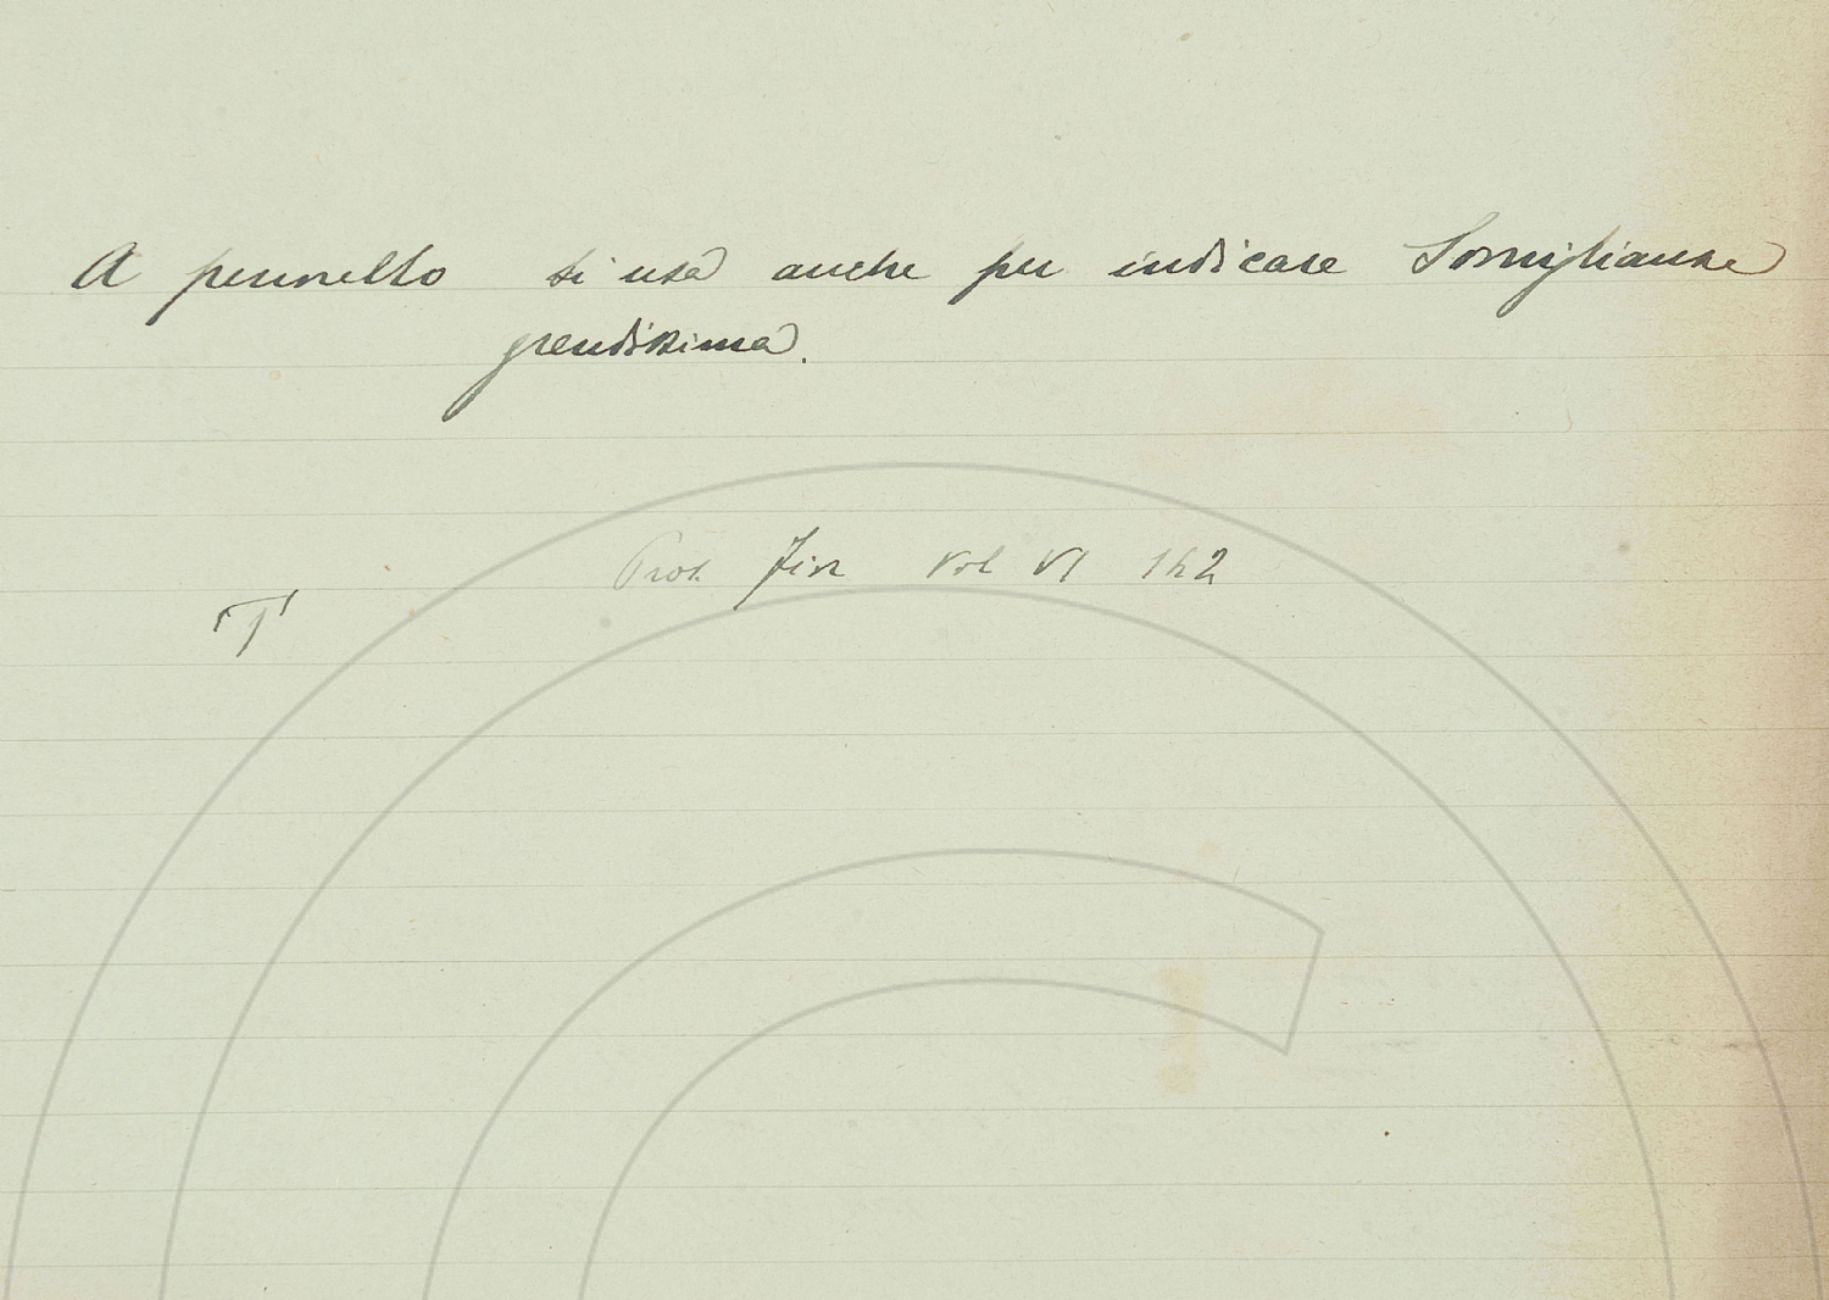 A pennello si usa anche per indicare Somiglianza
grandissima.
Pros. Fior Vol VI 142
T